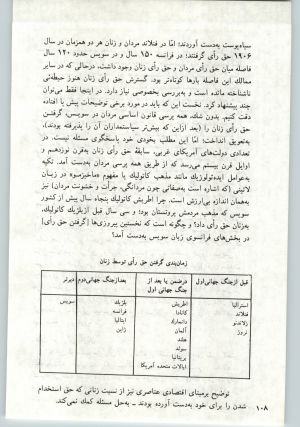 سیاه‌پوست به‌دست آوردند؛ امّا در فنلاند مردان و زنان هر دو همزمان در سال
۱۹۰۶ حق رأی گرفتند؛ در فرانسه ۱۵۰ سال و در سویس حدود ۱۲۰ سال
فاصله میان حق رأی مردان و حق رأی زنان وجود داشت، درحالی که در سایر
ممالک این فاصله بارها کوتاه‌تر بود. گسترش حق رأی زنان هنوز حیطه‌ئی
ناشناخته مانده است و به‌بررسی بخصوصی نیاز دارد. در اینجا فقط می‌توان
چند پیشنهاد کرد. نخست این که باید در مورد برخی توضیحات پیش پا افتاده
دقت کنیم. بدون شک، همه پرسی قانون اساسی مردان در سویس، گرفتن
حق رأی زنان را (بعد ازاین که بیش‌تر سیاستمداران آن را پذیرفته بودند)،
به‌تعویق انداخت؛ امّا این مطلب بخودی خود پاسخگوی مسئله نیست. در
تعدادی دولت‌های آمریکای غربی، سابقهٔ حق رأی زنان به‌قرن نوزدهم و
اوایل قرن بیستم می‌رسد که از طریق همه پرسی مردان به‌دست آمد. تکیه
به‌عوامل ایده‌ئولوژیک مانند مذهب کاتولیک یا مفهوم «ماخیزمو» در زبان
لاتینی (که اشاره است به‌صفاتی چون مردانگی، جرأت و خشونت مردان) نیز
به‌همان اندازه بی‌ارزش است. چرا اطریش کاتولیک پنجاه سال پیش از کشور
سویس که مذهب مردمش پروتستان بود؛ و سی سال قبل ازبلژیک کاتولیک،
به‌زنان حق رأی داد؟ و چگونه است که نخستین پیروزی‌ها [گرفتن حق رأی]
در بخش‌های فرانسوی زبان سویس به‌دست آمد؟
زمان‌بندی گرفتن حق رأی توسط زنان
قبل ازجنگ جهانی‌اول
درضمن یا بعد از جنگ جهانی اول
بعدازجنگ جهانی‌دوم
دیرتر
استرالیا
اطریش
بلژیک
سویس
فنلاند
کانادا
فرانسه
زلاندنو
دانمارک
ایتالیا
نروژ
آلمان
ژاپن
هلند
سوئد
بریتانیا
ایالات متحده آمریکا
توضیح برمبنای اقتصادی عناصری نیز از نسبت زنانی که حق استخدام
شدن را برای خود به‌دست آورده بودند ـ به‌حل مسئله کمک نمی‌کند.
۱۰۸